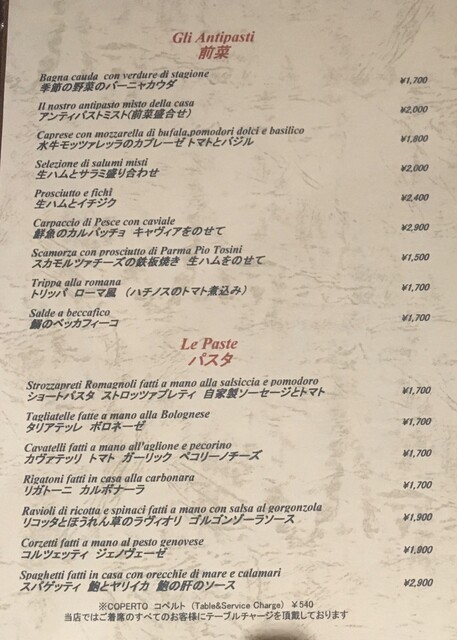 Gli Antipasti
前菜
Bagna cauda con verdure di stagione
季節の野菜のバーニャカウダ ¥1,700
Il nostro antipasto misto della casa
アンティパストミスト(前菜盛合せ) ¥2,000
Caprese con mozzarella di bufala,pomodori dolci e basilico
水牛モッツァレッラのカプレーゼ トマトとバジル ¥1,800
Selezione di salumi misti
生ハムとサラミ盛り合わせ ¥2,000
Prosciutto e fichi
生ハムとイチジク ¥2,400
Carpaccio di Pesce con caviale
鮮魚のカルパッチョ キャヴィアをのせて ¥2,900
Scamorza con prosciutto di Parma Pio Tosini
スカモルツァチーズの鉄板焼き 生ハムをのせて ¥1,500
Trippa alla romana
トリッパ ローマ風 (ハチノスのトマト煮込み) ¥1,700
Salde a beccafico
鰯のベッカフィーコ ¥1,700
Le Paste
パスタ
Strozzapreti Romagnoli fatti a mano alla salsiccia e pomodoro
ショートパスタ ストロッツァプレティ 自家製ソーセージとトマト ¥1,700
Tagliatelle fatte a mano alla Bolognese
タリアテッレ ボロネーゼ ¥1,700
Cavatelli fatti a mano all'aglione e pecorino
カヴァテッリ トマト ガーリック ペコリーノチーズ ¥1,700
Rigatoni fatti in casa alla carbonara
リガトーニ カルボナーラ ¥1,700
Ravioli di ricotta e spinaci fatti a mano con salsa al gorgonzola
リコッタとほうれん草のラヴィオリ ゴルゴンゾーラソース ¥1,900
Corzetti fatti a mano al pesto genovese
コルツェッティ ジェノヴェーゼ ¥1,800
Spaghetti fatti in casa con orecchie di mare e calamari
スパゲッティ 鮑とヤリイカ 鮑の肝のソース ¥2,900
※COPERTO コペルト (Table&Service Charge) ¥540
当店ではご着席のすべてのお客様にテーブルチャージを頂戴しております